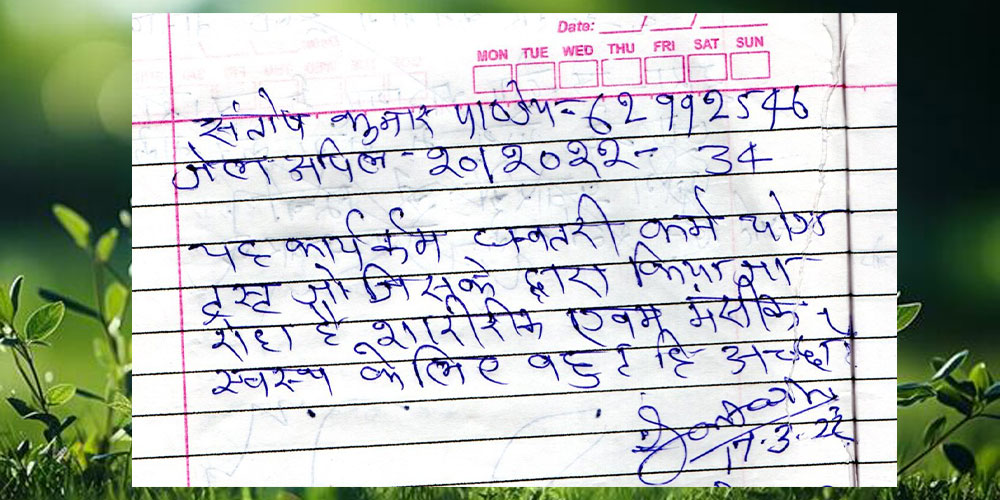 Date:
MON TUE WED THU FRI SAT SUN
संतोष कुमार पाण्डेय - 62992546
जेल अपिल - २०/२०२२ - 34
यह कार्यर्कम धनवतरी कर्म योग
ट्रस्ट जो जिसके द्वारा किया जा
राहा है शारीरीक एवम्
स्वस्थ के लिए बहुत हि अच्छा
17.3.22